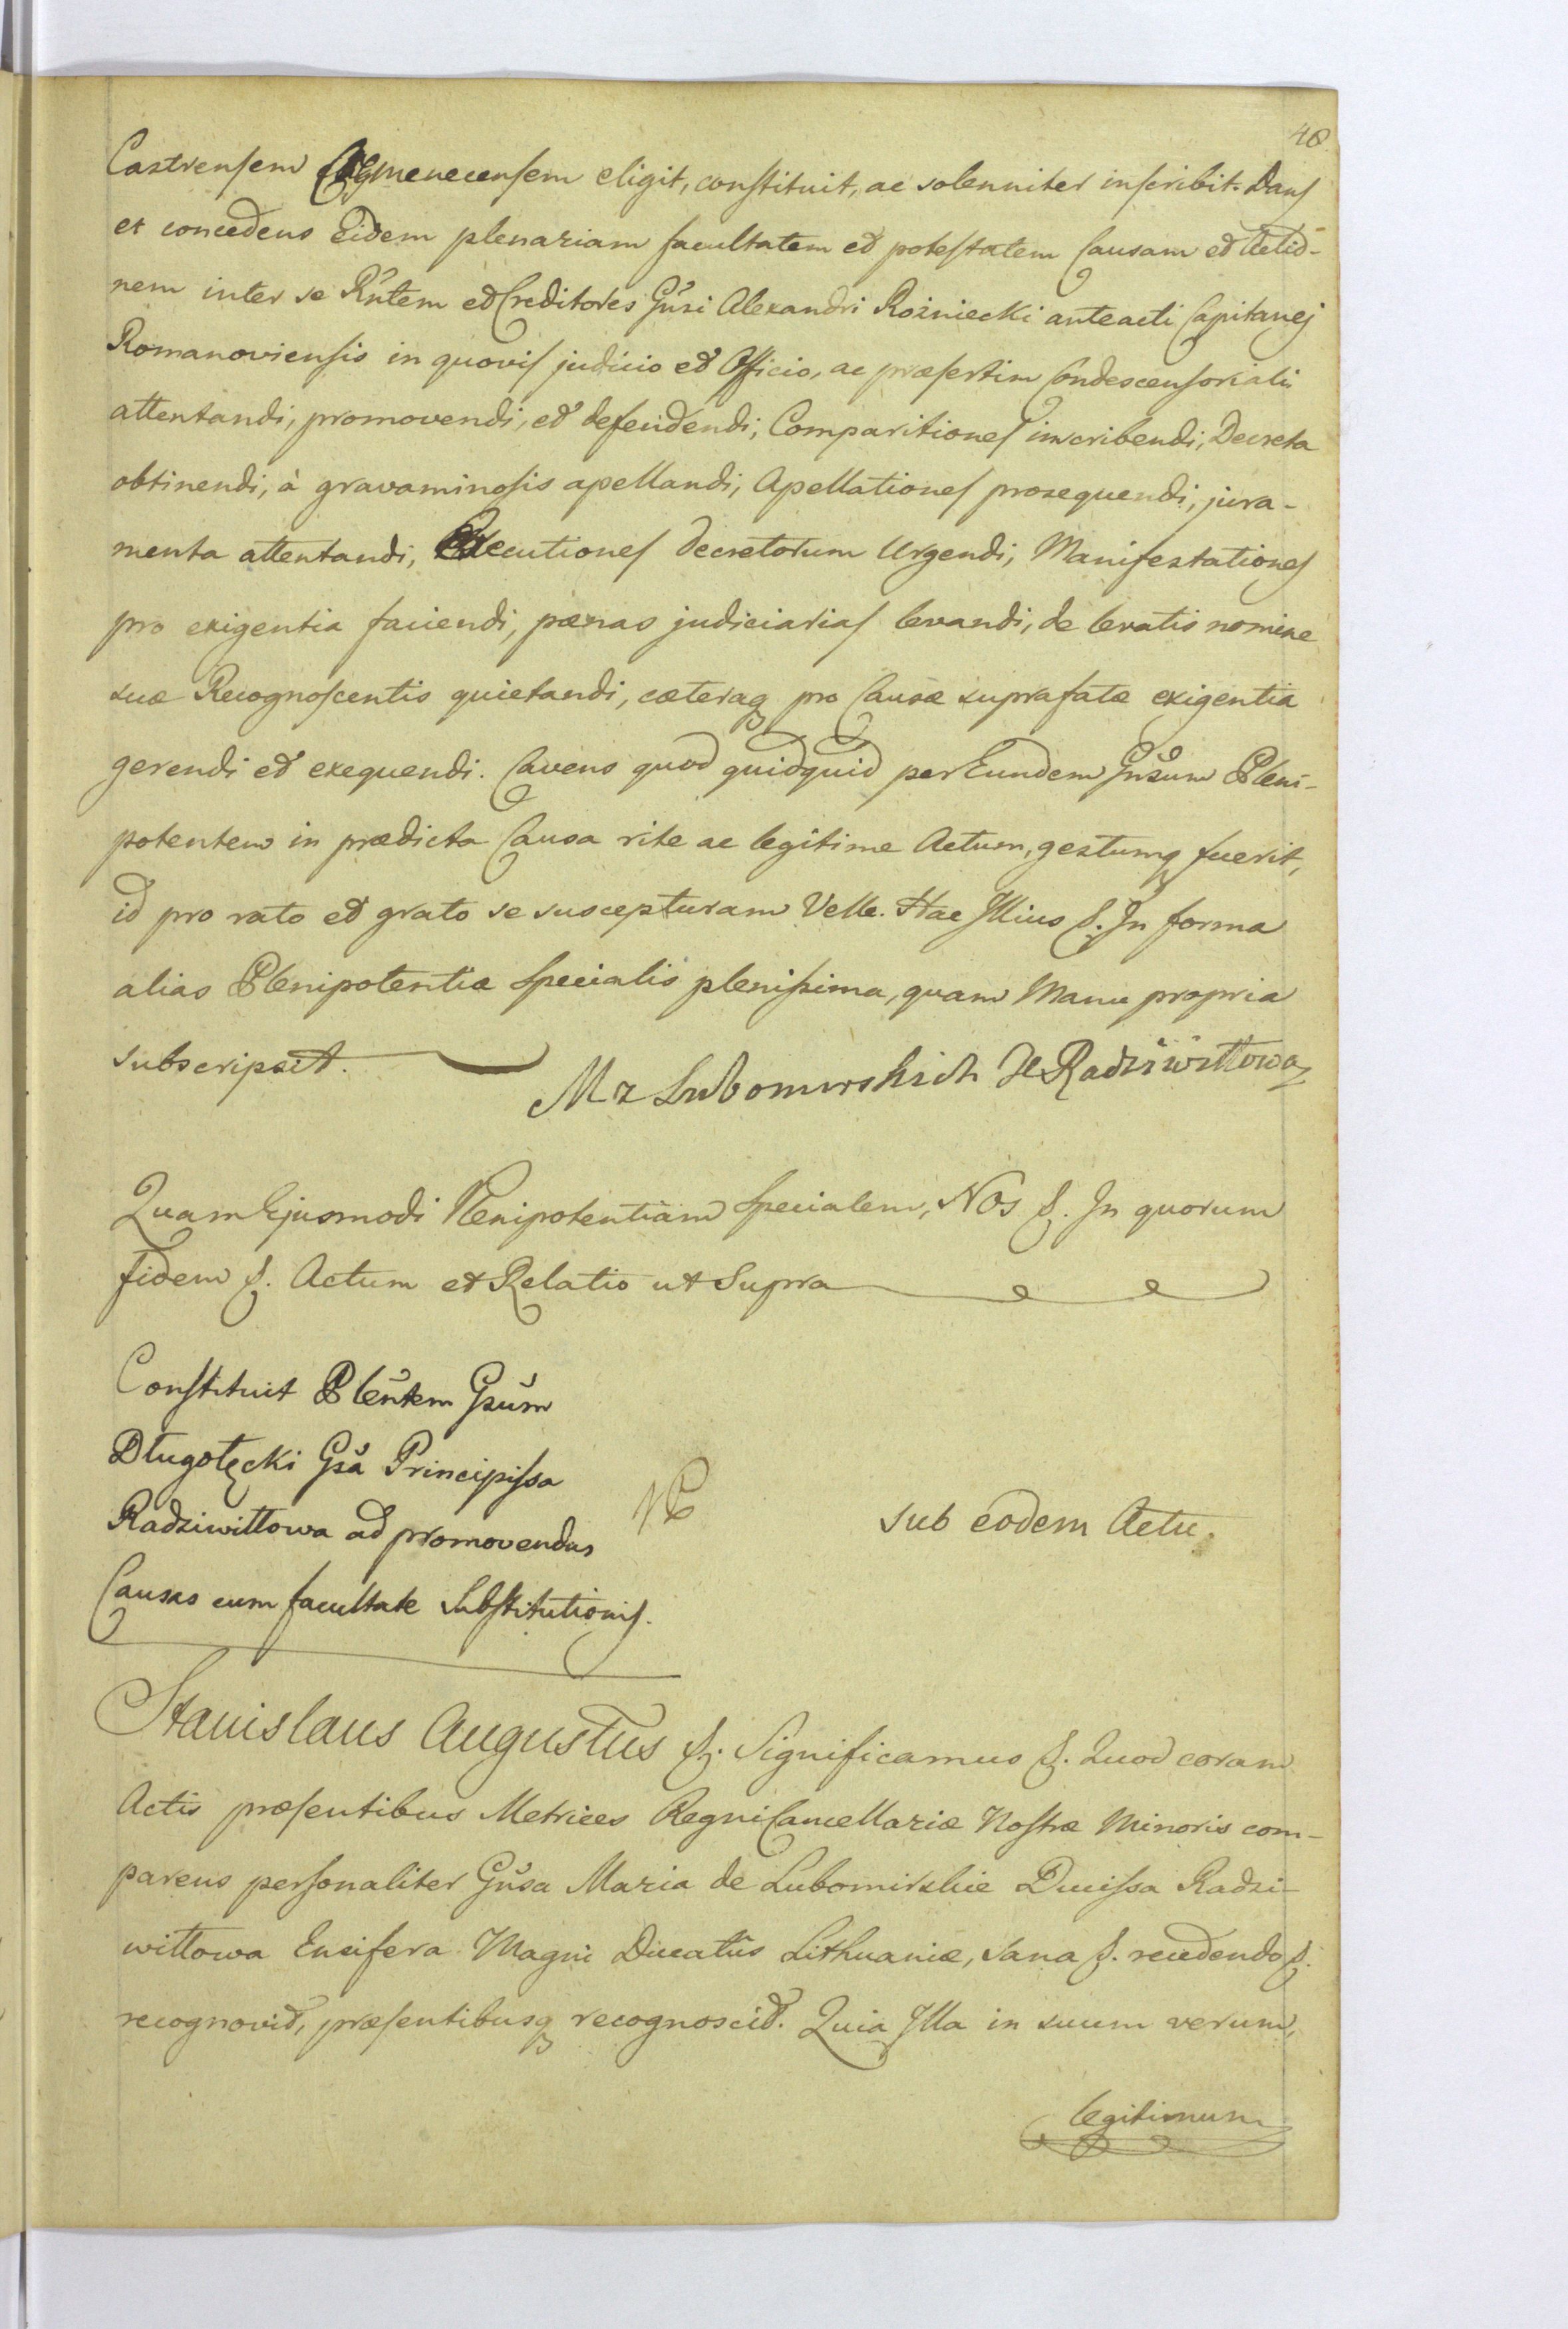 48
Castrensem eligit, constituit, ac solenniter inscribit. Dans
et concedens Eidem plenariam facultatem et potestatem Causam et Actio-
nem inter se Rntem et Creditores Gnsi Alexandri Rożniecki anteacti Capitanej
Romanoviensis in quovis judicio et Officio, ac præsertim Condescensoriali
attentandi, promovendi, et defendendi, Comparitiones inscribendi, Decreta
obtinendi, à gravaminosis apellandi, Apellationes prosequendi, jura-
menta attentandi, Executiones decretorum Urgendi, Manifestationes
pro exigentia faciendi, pœnas judiciarias levandi, de levatis nomine
suæ Recognoscentis quietandi, cæteraq pro Causæ suprafatæ exigentia
gerendi et exequendi. Cavens quod quidquid per Eundem Gnsum Pleni-
potentem in prædicta Causa rite ac legitime Actum, gestumq fuerit,
id pro rato et grato se suscepturam Velle. Hac Illius &. In forma
alias Plenipotentiæ specialis plenissima, quam Manu propria
subscripsit.
M z Lubomirskich X Radziwiłłowa
Quam Ejusmodi Plenipotentiam specialem, Nos &. In quorum
fidem &. Actum et Relatio ut Supra
Constituit Plentem Gsum
Długołęcki Gsa Principissa
Radziwiłłowa ad promovendas
Causas cum facultate Substitutionis.
sub eodem Actu.
Stanislaus Augustus &. Significamus &. Quod coram
Actis præsentibus Metrices Regni Cancellariæ Nostræ Minoris com-
parens personaliter Gnsa Maria de Lubomirskie Ducissa Radzi-
wiłłowa Ensifera Magni Ducatûs Lithuaniæ, sana &. recedendo &.
recognovit, præsentibusq recognoscit. Quia Illa in suum verum,
legitimum